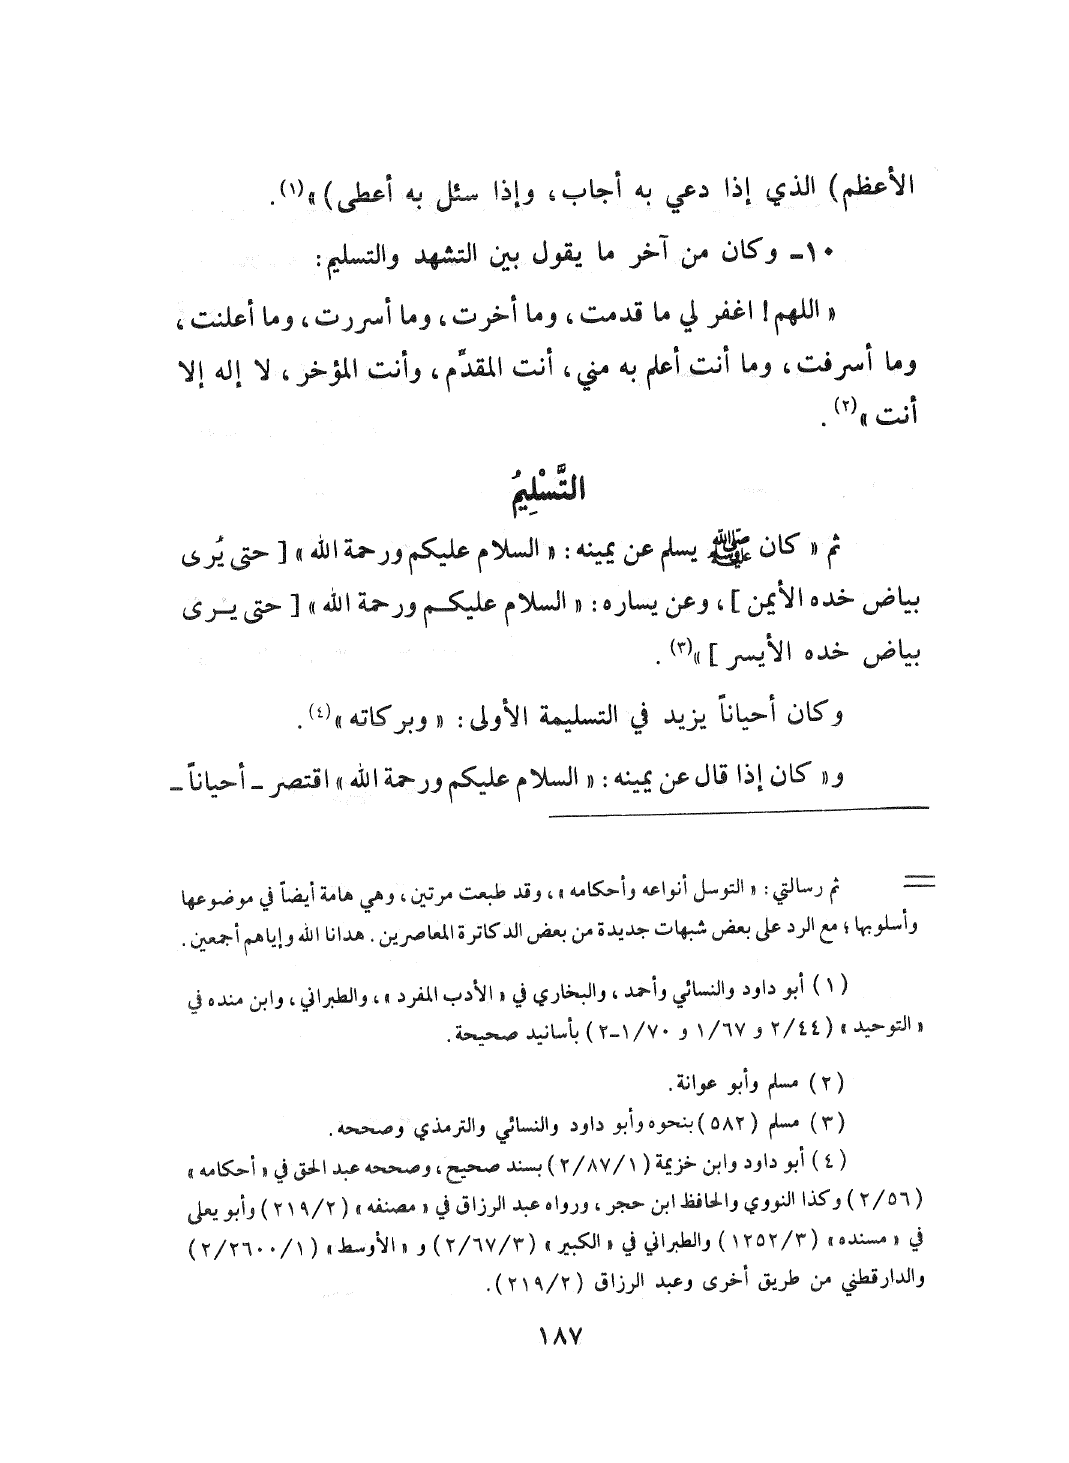 الأعظم) الذي إذا دعي به أجاب، وإذا سئل به أعطى)»(١).
١٠ـ وكان من آخر ما يقول بين التشهد والتسليم:
« اللهم! اغفر لي ما قدمت، وما أخرت، وما أسررت، وما أعلنت،
وما أسرفت، وما أنت أعلم به مني، أنت المقدِّم، وأنت المؤخر، لا إله إلا
أنت»(٢).
التَّسْلِيمُ
ثم « كان ﷺ يسلم عن يمينه: « السلام عليكم ورحمة الله » [ حتى يُرى
بياض خده الأيمن ]، وعن يساره: « السلام عليكم ورحمة الله » [ حتى يرى
بياض خده الأيسر ]»(٣).
وكان أحياناً يزيد في التسليمة الأولى: « وبركاته »(٤).
و« كان إذا قال عن يمينه: « السلام عليكم ورحمة الله » اقتصر ـ أحياناً ـ
= ثم رسالتي: « التوسل أنواعه وأحكامه »، وقد طبعت مرتين، وهي هامة أيضاً في موضوعها
وأسلوبها؛ مع الرد على بعض شبهات جديدة من بعض الدكاترة المعاصرين. هدانا الله وإياهم أجمعين.
(١) أبو داود والنسائي وأحمد، والبخاري في « الأدب المفرد »، والطبراني، وابن منده في
« التوحيد » (٢/٤٤ و ١/٦٧ و ١/٧٠-٢) بأسانيد صحيحة.
(٢) مسلم وأبو عوانة.
(٣) مسلم (٥٨٢) بنحوه وأبو داود والنسائي والترمذي وصححه.
(٤) أبو داود وابن خزيمة (٢/٨٧/١) بسند صحيح، وصححه عبد الحق في « أحكامه »
(٢/٥٦) وكذا النووي والحافظ ابن حجر، ورواه عبد الرزاق في « مصنفه » (٢١٩/٢) وأبو يعلى
في « مسنده» (١٢٥٢/٣) والطبراني في « الكبير » (٢/٦٧/٣) و « الأوسط » (٢/٢٦٠٠/١)
والدارقطني من طريق أخرى وعبد الرزاق (٢١٩/٢).
١٨٧